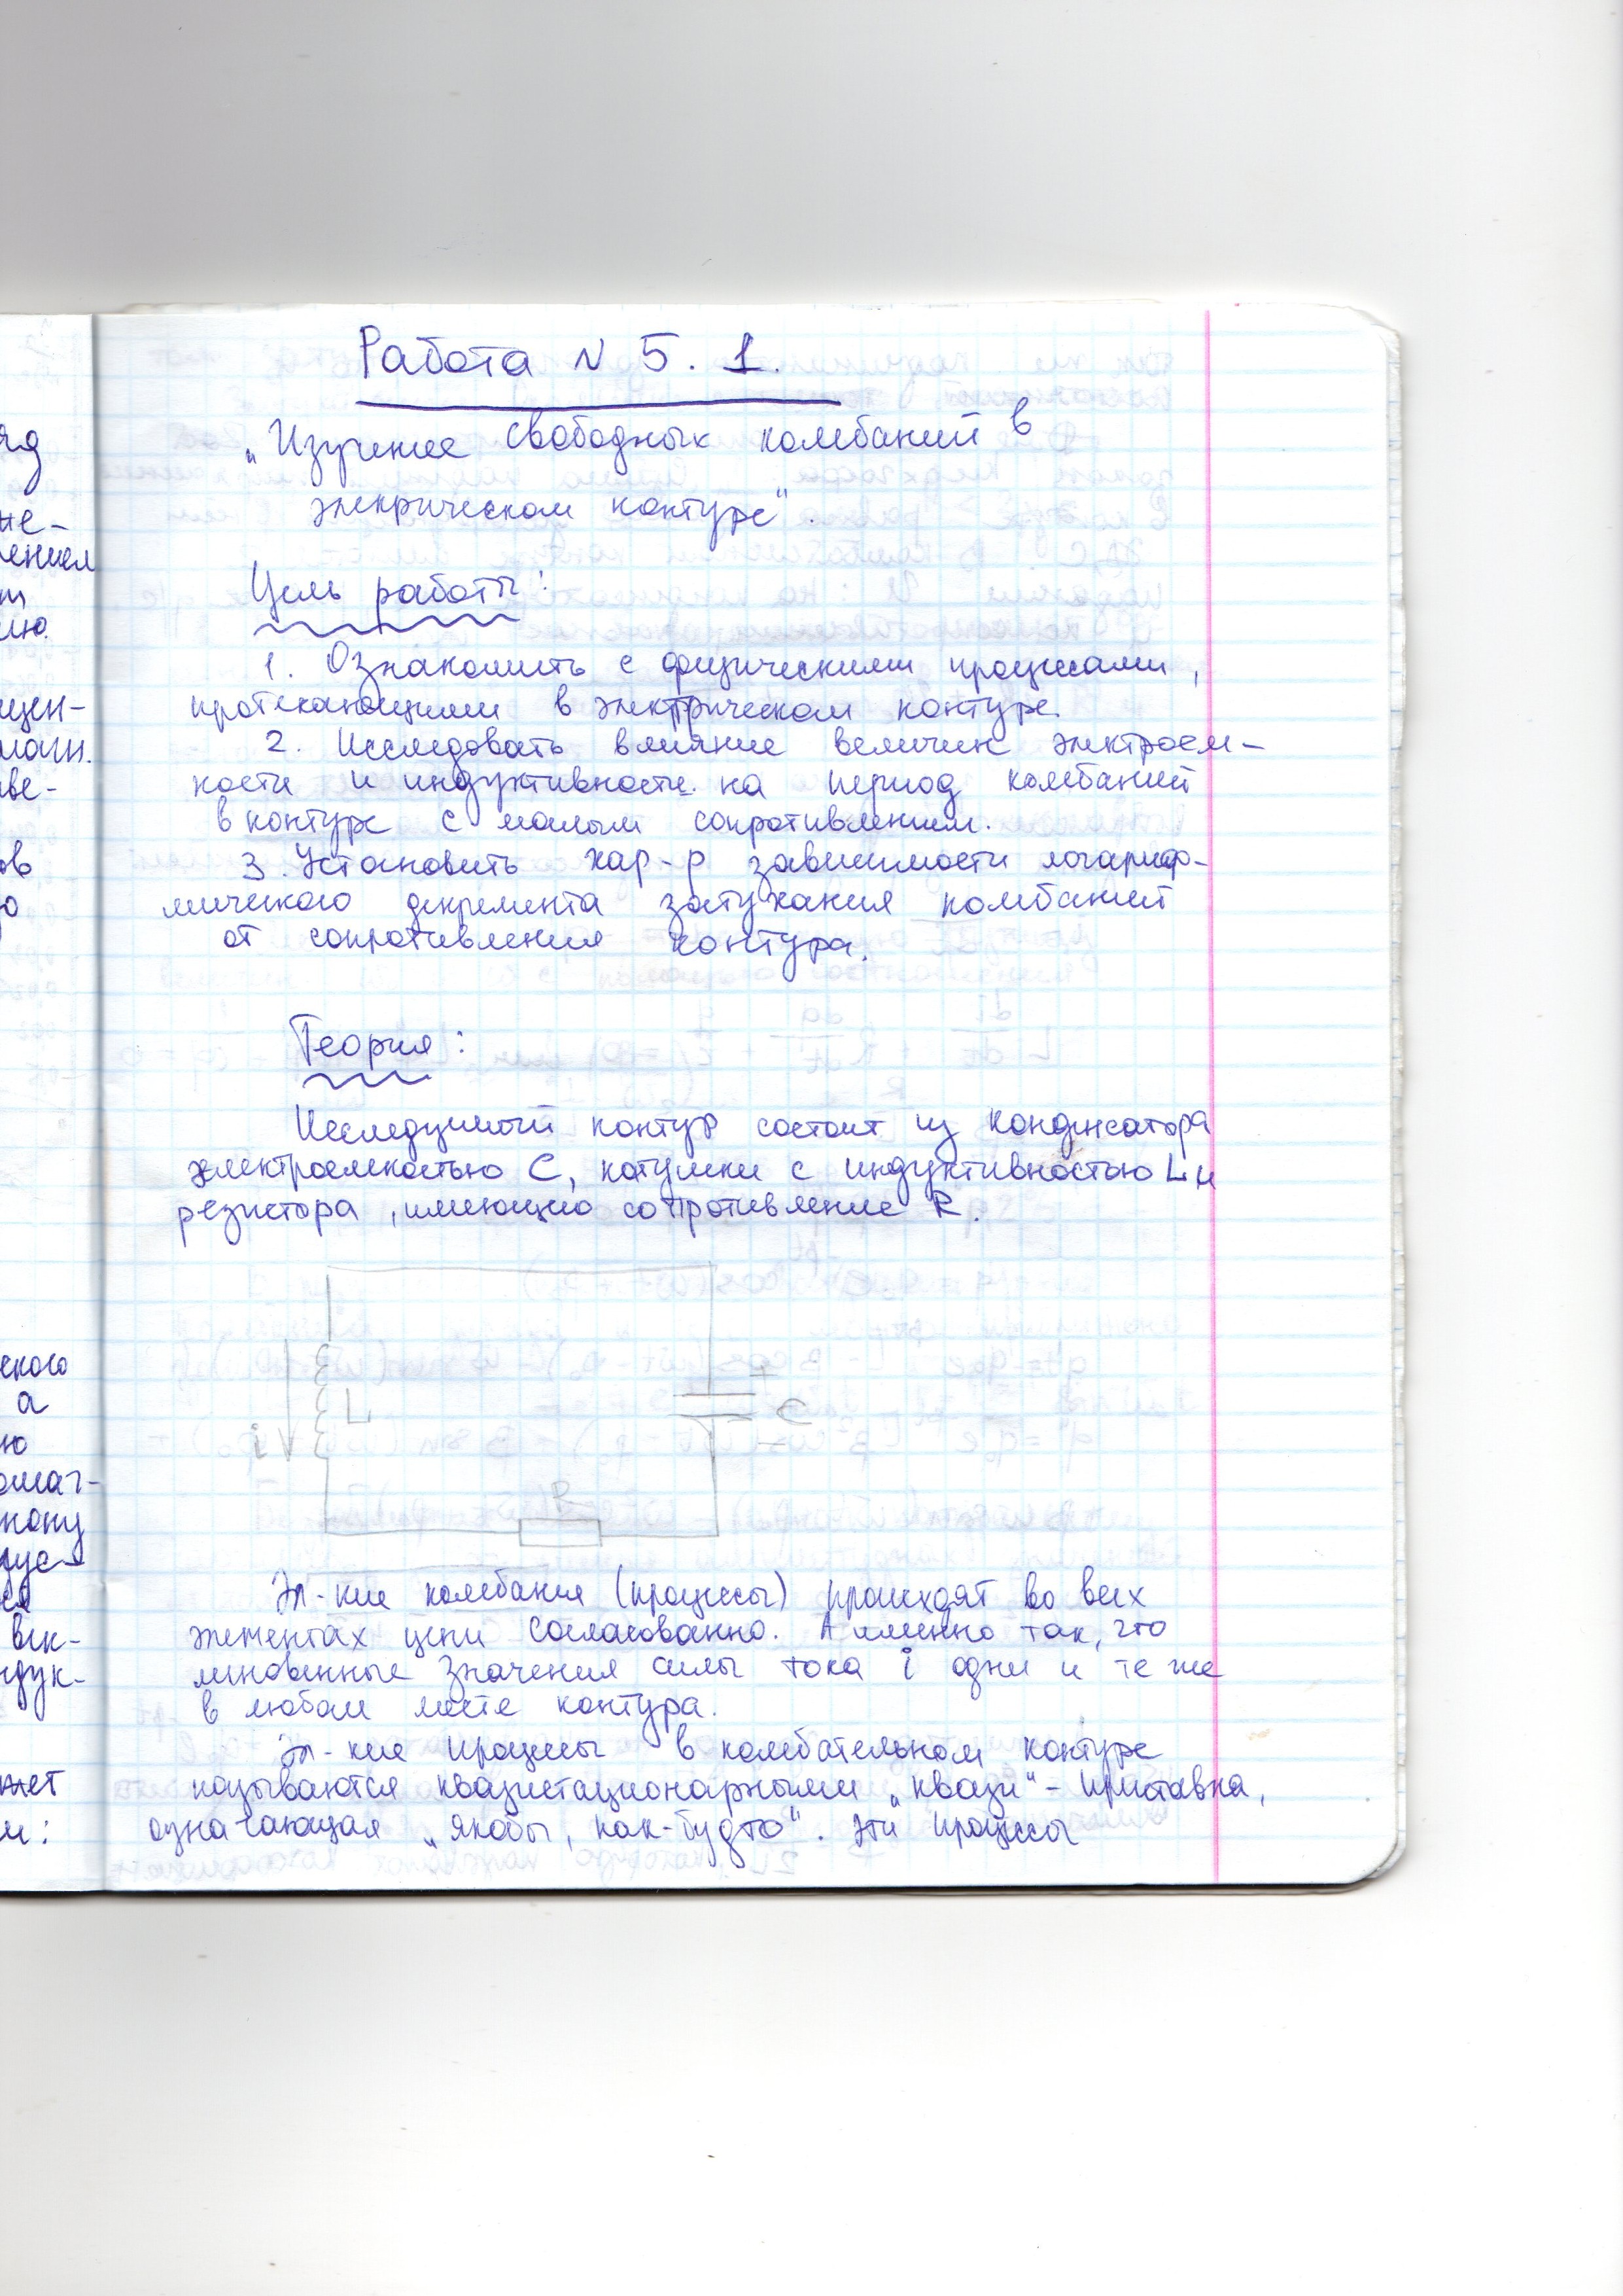 Работа N 5. 1.
„Изучение свободных колебаний в
элекрическом контуре".
Цель работы:
1. Ознакомить с физическими процессами,
протекающими в электрическом контуре.
2. Исследовать влияние величин электроем-
кости и индуктивности на период колебаний
в контуре с малым сопротивлением.
3. Установить хар-р зависимости логариф-
мического декремента затухания колебаний
от сопротивления контура.
Теория:
Исследуемый контур состоит из конденсатора
электроемкостью C, катушки с индуктивностью L и
резистора, имеющию сопротивление R.
+
L
C
i
R
Эл-кие колебания (процессы) происходят во всех
элементах цепи согласованно. А именно так, что
мгновенные значения силы тока i одни и те же
в любом месте контура.
Эл-кие процессы в колебательном контуре
называются квазистационарными „квази" - приставка,
означающая „якобы, как-будто". Эти процессы